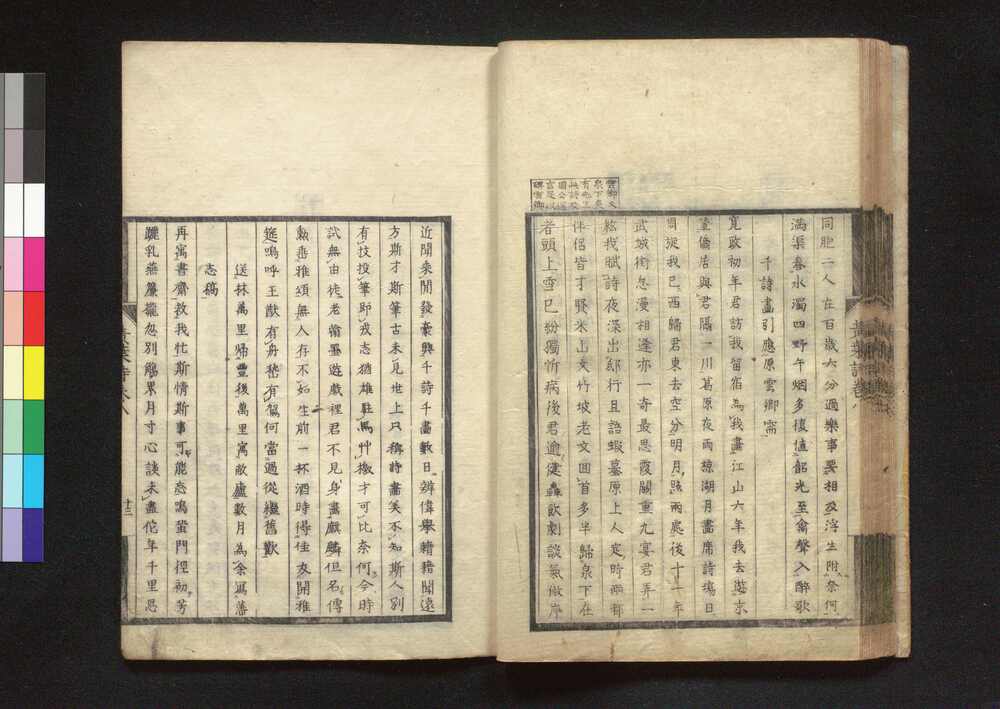 同胞二人在百歲六分過樂事要相及浮生附奈何
滿渠春水濁四野午烟多復值韶光至禽聲入醉歌
千詩畫引應原雲卿需
寬政初年君訪我留宿為我畫江山六年我去遊京
臺僑居與君隔一川葛原夜雨椋湖月畫席詩塲日
周旋我已西歸君東去空分明月照兩處後十一年
武城街忽漫相逢亦一奇最思霞關重九宴君弄一
絃我賦詩夜深出邸行且語蝦蟇原上人定時兩有
伴侶皆才賢米山文竹坡老文回首多半歸泉下在
者頭上雪已紛獨忻病後君逾健轟飲劇談氣傲岸
近聞乘閒發豪興千詩千畫數日辨偉學籍籍聞遠
方斯才斯筆古未見世上只稱詩畫美不知斯人別
有技投筆即戎志猶雄駐馬艸檄才可比奈何今時
試無由徒老翰墨遊戲裡君不見身畫麒麟但名傳
勲垂雅頌無人存不如生前一杯酒時得佳友開雅
筵嗚呼王猷有舟嵆有駕何當過從繼舊歡
送林萬里歸豐後萬里寓敝廬數月為余寫藩
志稿
再寓書齋教我忙斯情斯事可能忘鳴蛩門徑初芳
躧乳燕簾櫳忽別觴累月寸心談未盡佗年千里思
十三